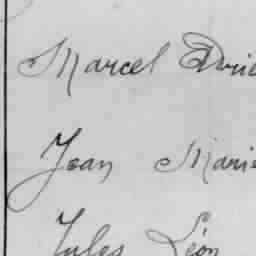 Marcel Adrie
Jean Marie
Jules Léon